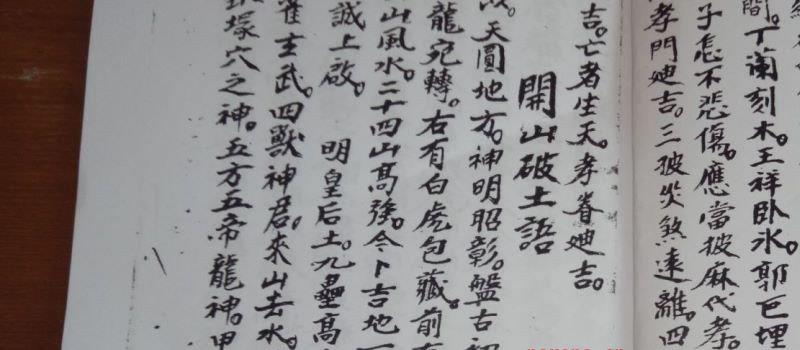 間。丁蘭刻木。王祥卧氷。郭巨埋
子怎不悲傷。應當披麻代孝。
孝門迪吉。三披災煞遠離。四
吉。亡者生天。孝眷迪吉。
開山破土語
天圓地方。神明昭彰。盤古
龍宛轉。右有白虎包藏。前
山風水。二十四山高強。今卜吉地
誠上啟。 明皇后土。九壘高
雀玄武。四獸神君。來山去水。
塚穴之神。五方五帝龍神。甲